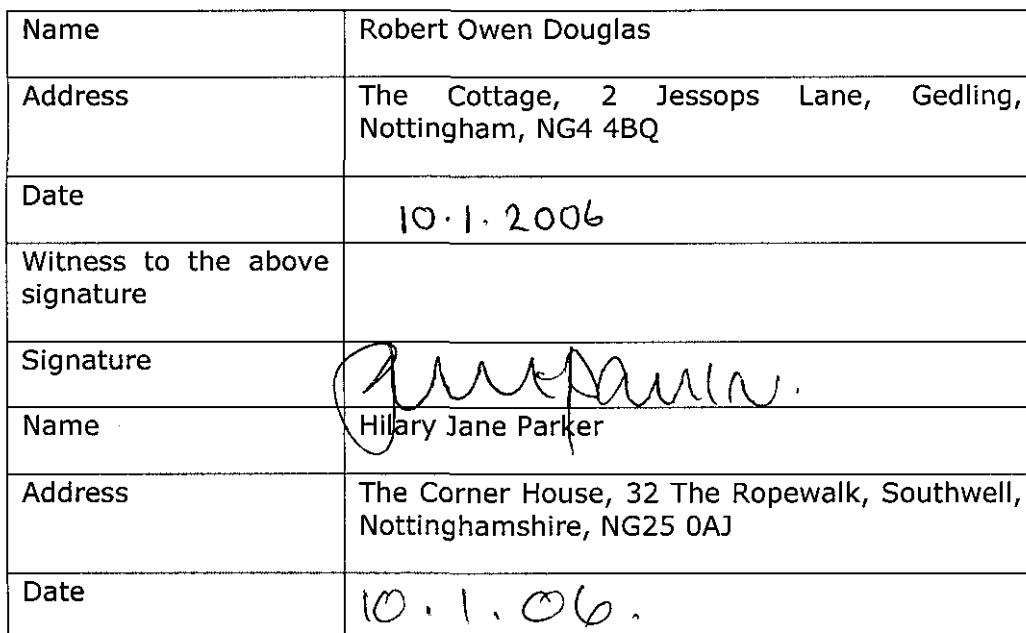 Name Robert Owen Douglas
Address The Cottage, 2 Jessops Lane, Gedling,
Nottingham, NG4 4BQ
Date 10.1.2006
Witness to the above
signature
Signature
Name Hilary Jane Parker
Address The Corner House, 32 The Ropewalk, Southwell,
Nottinghamshire, NG25 0AJ
Date 10.1.06.